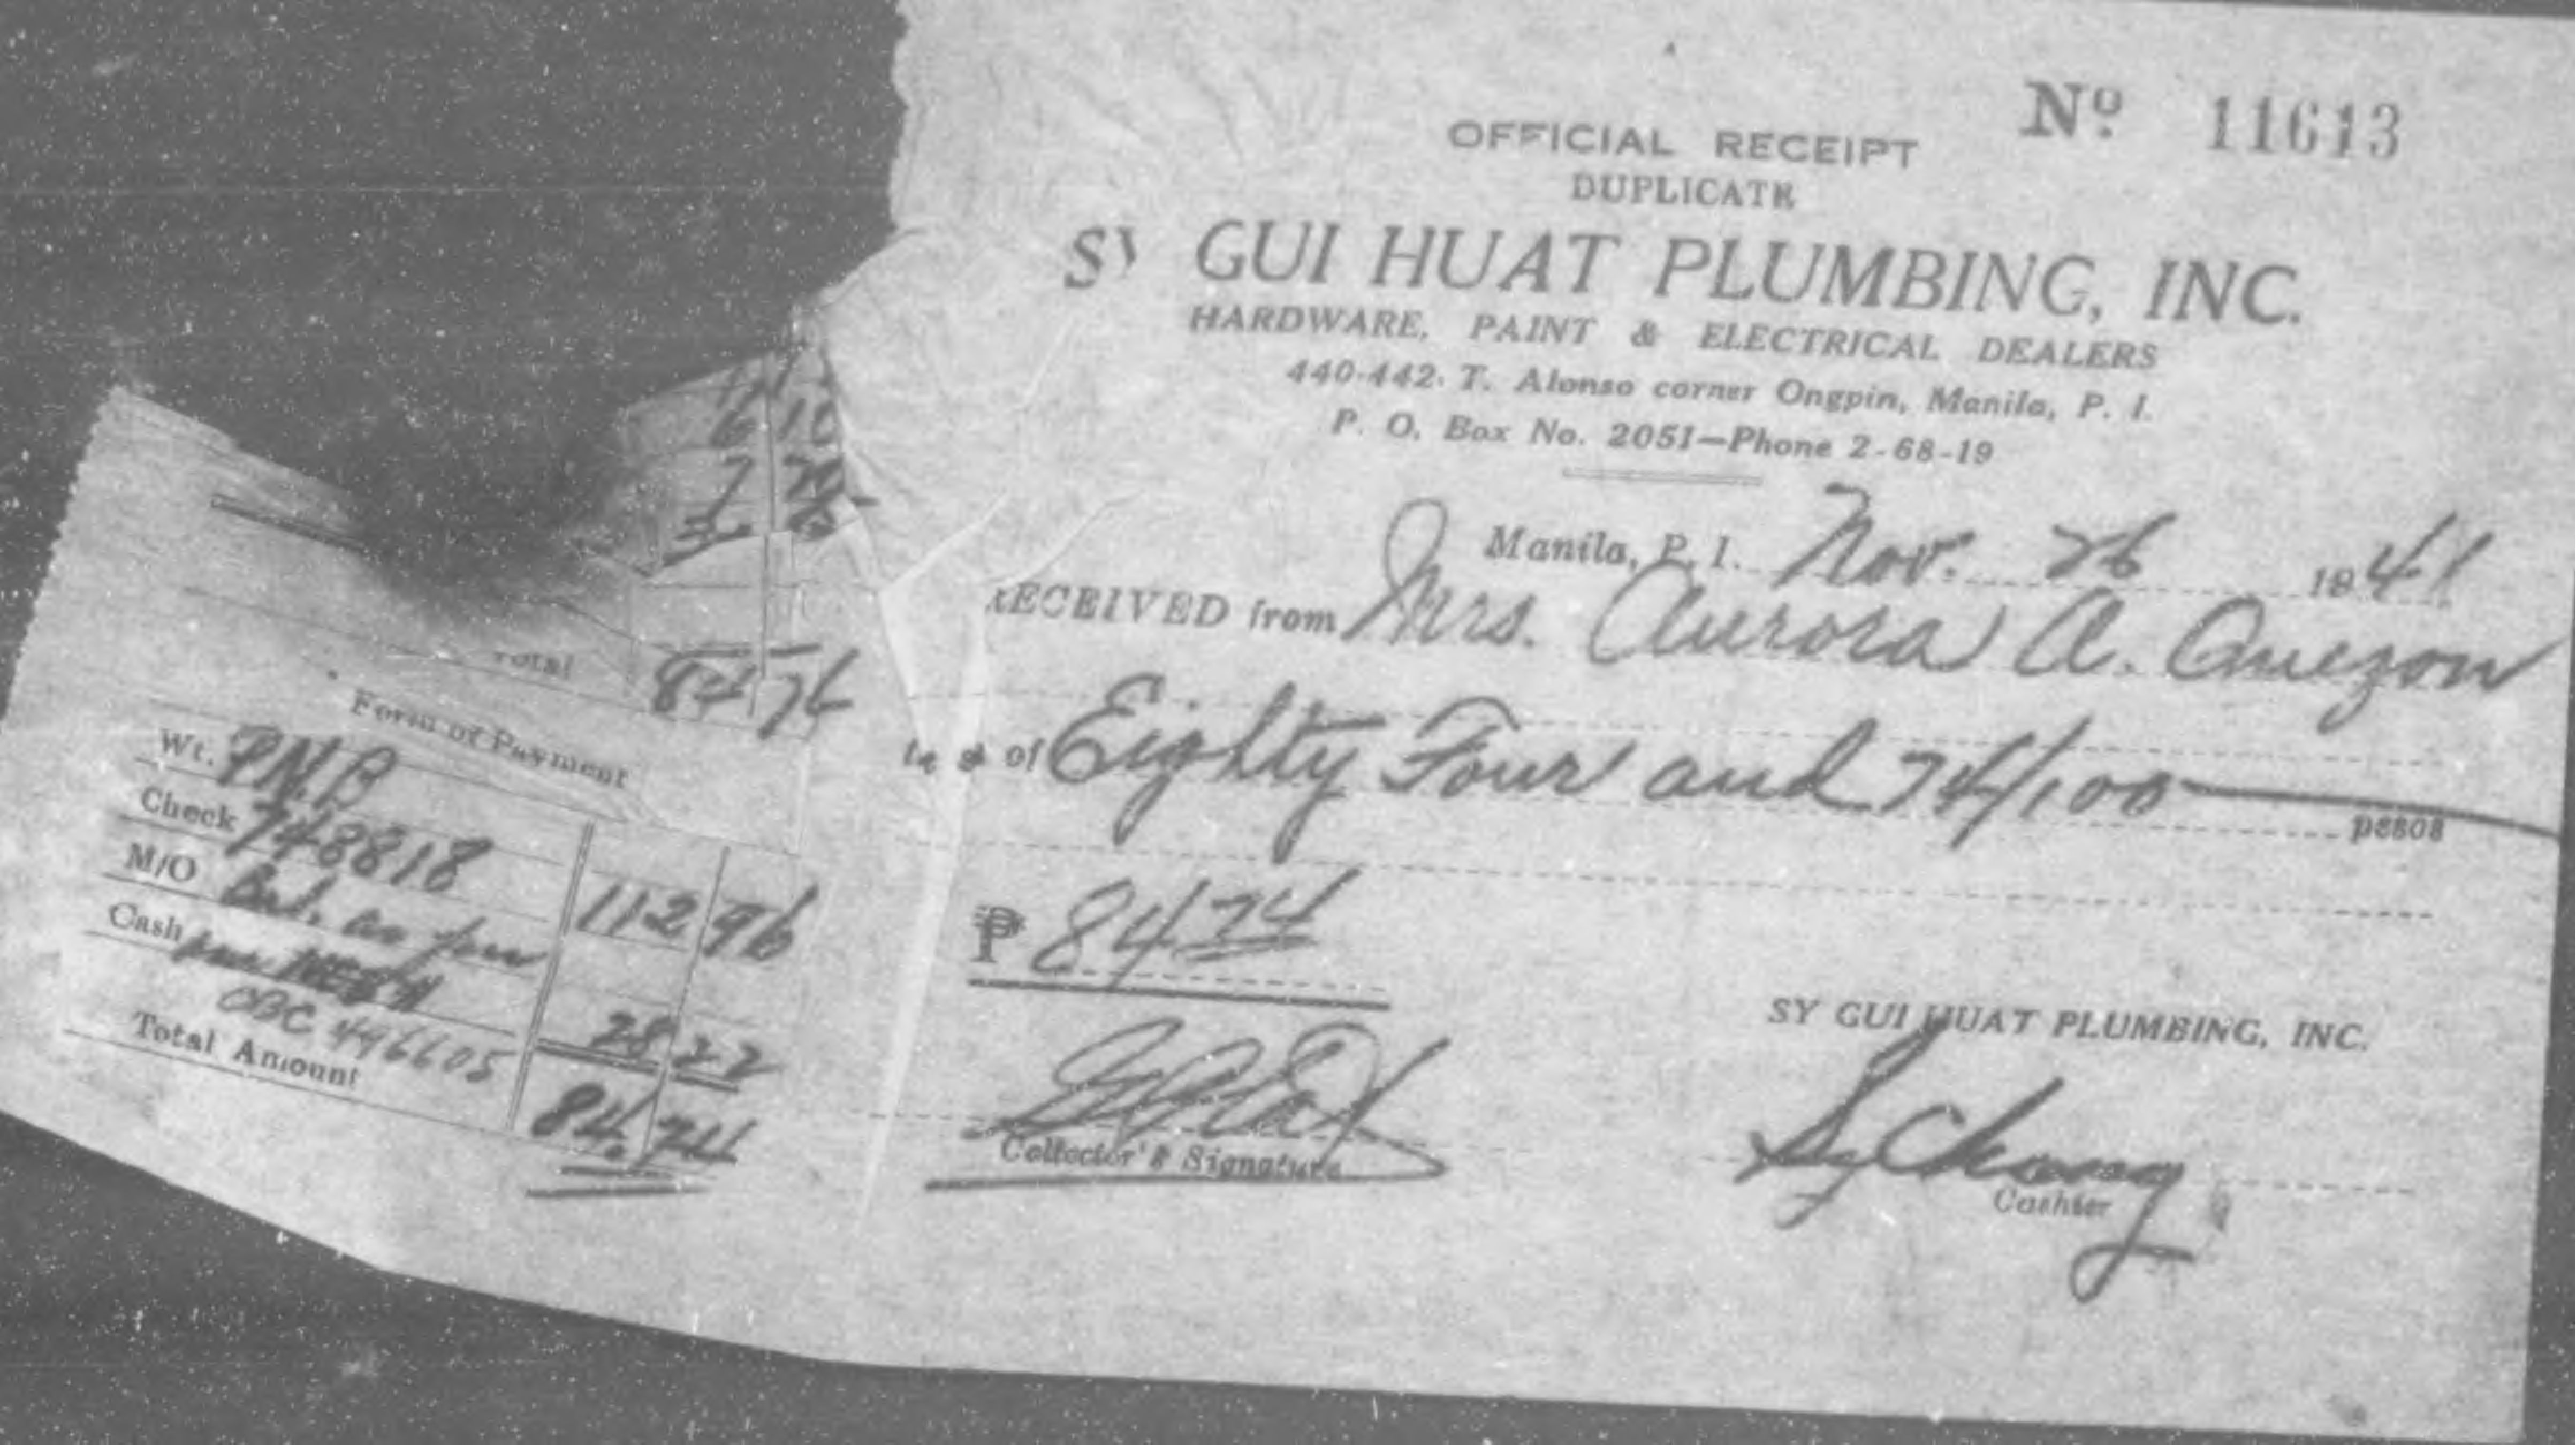 Nº 11613
OFFICIAL RECEIPT
DUPLICATE
SY GUI HUAT PLUMBING, INC.
HARDWARE, PAINT & ELECTRICAL DEALERS
440-442. T. Alonso corner Ongpin, Manila, P. I.
P. O. Box No. 2051—Phone 2-68-19
Manila, P. I. Nov. 26 1941
RECEIVED from Mrs. Aurora A. Quezon
of Eighty Four and 74/100
pesos
₱ 84 74
Collector's Signature
SY GUI HUAT PLUMBING, INC.
Sy Chong
Cashier
6 10
Total 84 74
Form of Payment
Wt. P.N.B
Check 748818 112 96
M/O Bal. as per
Cash 28 22
CBC 496605
Total Amount 84. 74